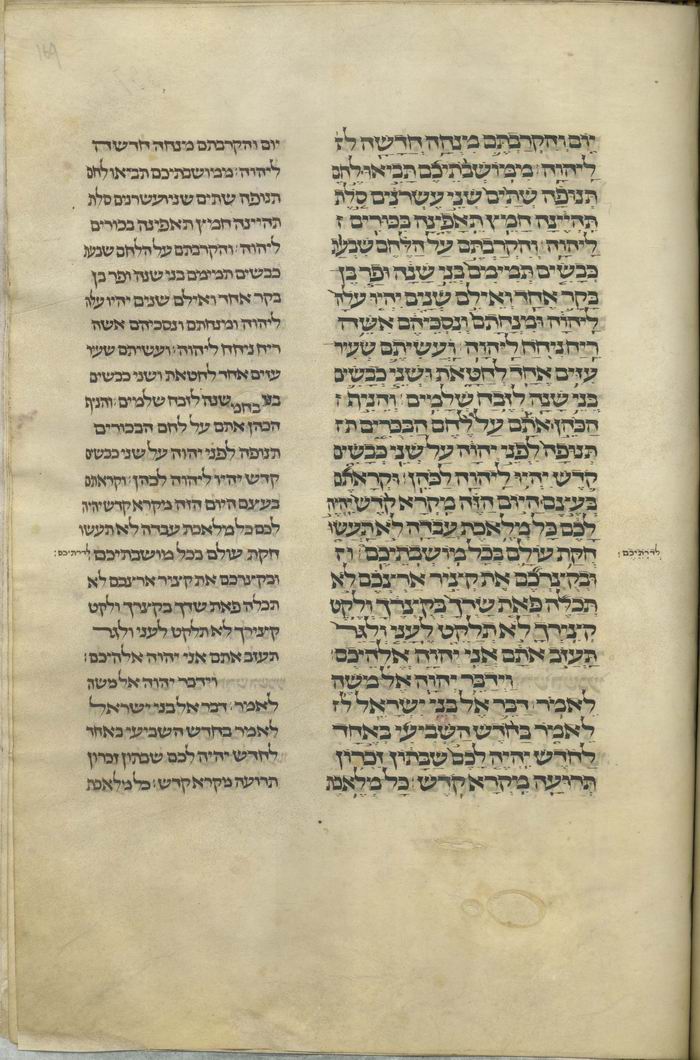 169
יום והקרבתם מנחה חדשה ל
ליהוה׃ ממושבתיכם תביאו לחם
תנופה שתים שני עשרנים סלת
תהיינה חמץ תאפינה בכורים
ליהוה׃ והקרבתם על הלחם שבעת
כבשים תמימם בני שנה ופר בן
בקר אחד ואילם שנים יהיו עלה
ליהוה ומנחתם ונסכיהם אשה
ריח ניחח ליהוה׃ ועשיתם שעיר
עזים אחד לחטאת ושני כבשים
בני שנה לזבח שלמים׃ והניף
הכהן אתם על לחם הבכרים ת
תנופה לפני יהוה על שני כבשים
קדש יהיו ליהוה לכהן׃ וקראתם
בעצם היום הזה מקרא קדש יהיה
לכם כל מלאכת עבדה לא תעשו
חקת עולם בכל מושבתיכם ו
לדרתיכם׃
ובקצרכם את קציר ארצכם לא
תכלה פאת שדך בקצרך ולקט
קצירך לא תלקט לעני ולגר
תעזב אתם אני יהוה אלהיכם׃
וידבר יהוה אל משה
לאמר׃ דבר אל בני ישראל ל
לאמר בחדש השביעי באחד
לחדש יהיה לכם שבתון זכרון
תרועה מקרא קדש׃ כל מלאכת
יום והקרבתם מנחה חדשה
ליהוה׃ ממושבתיכם תביאו לחם
תנופה שתים שני עשרנים סלת
תהיינה חמיץ תאפינה בכורים
ליהוה׃ והקרבתם על הלחם שבעת
כבשים תמימם בני שנה ופר בן
בקר אחד ואילם שנים יהיו עלה
ליהוה ומנחתם ונסכיהם אשה
ריח ניחח ליהוה׃ ועשיתם שעיר
עזים אחד לחטאת ושני כבשים
שנה לזבח שלמים׃ והניף
הכהן אתם על לחם הבכורים
תנופה לפני יהוה על שני כבשים
קדש יהיו ליהוה לכהן׃ וקראתם
בעצם היום הזה מקרא קדש יהיה
לכם כל מלאכת עבדה לא תעשו
חקת עולם בכל מושבתיכם לדרתיכם׃
ובקצרכם את קציר ארצכם לא
תכלה פאת שדך בקצרך ולקט
קצירך לא תלקט לעני ולגר
תעזב אתם אני יהוה אלהיכם׃
וידבר יהוה אל משה
לאמר׃ דבר אל בני ישראל
לאמר בחדש השביעי באחד
לחדש יהיה לכם שבתון זכרון
תרועה מקרא קדש׃ כל מלאכת